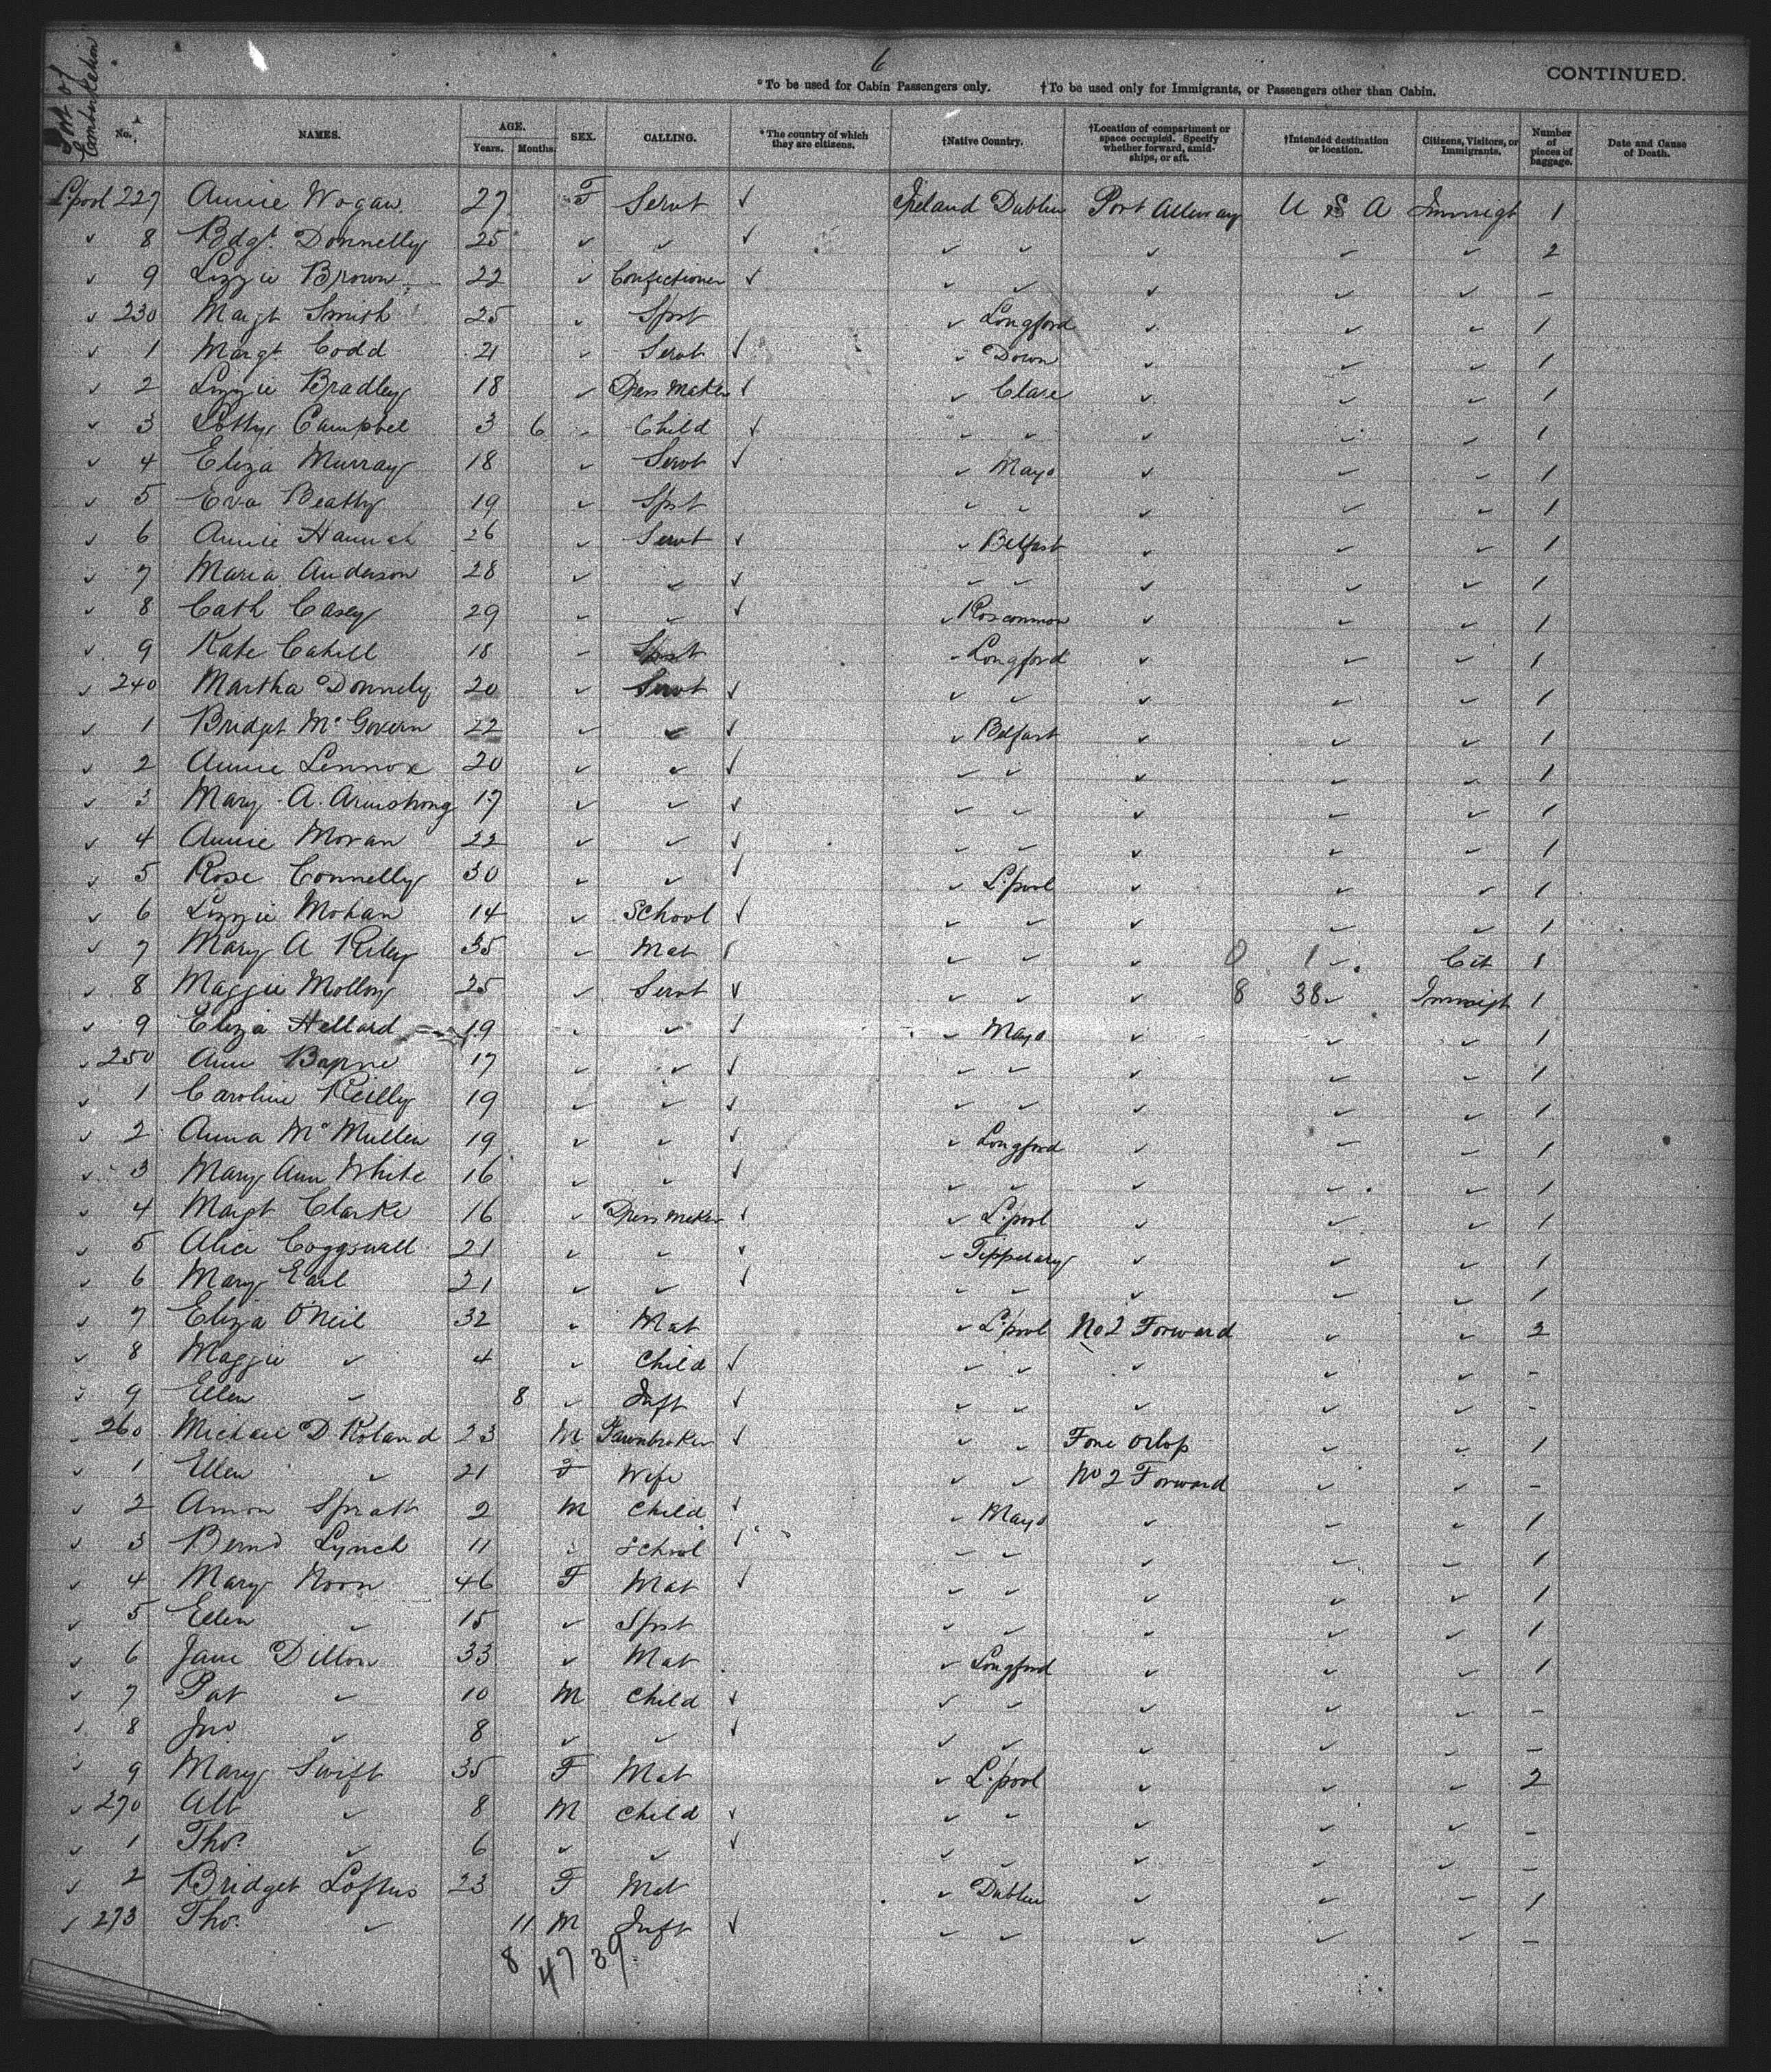 6
CONTINUED.
*To be used for Cabin Passengers only. †To be used only for Immigrants, or Passengers other than Cabin.
Port of Embarkation
No. NAMES. AGE. Years. Months. SEX. CALLING. *The country of which they are citizens. †Native Country. †Location of compartment or space occupied. Specify whether forward, amidships, or aft. †Intended destination or location. Citizens, Visitors, or Immigrants. Number of pieces of baggage. Date and Cause of Death.
L'pool 227 Annie Wogan 27 F Servt ✓ Ireland Dublin Port Alleway U S A Immigt 1
✓ 8 Bdgt Donnelly 25 ✓ ✓ ✓ ✓ ✓ ✓ ✓ ✓ 2
✓ 9 Lizzie Brown 22 ✓ Confectioner ✓ ✓ ✓ ✓ ✓ ✓ –
✓ 230 Margt Smith 25 ✓ Spst ✓ Longford ✓ ✓ ✓ 1
✓ 1 Margt Codd 21 ✓ Servt ✓ ✓ Down ✓ ✓ ✓ 1
✓ 2 Lizzie Bradley 18 ✓ Dress Maker ✓ ✓ Clare ✓ ✓ ✓ 1
✓ 3 Lotty Campbel 3 6 ✓ Child ✓ ✓ ✓ ✓ ✓ ✓ 1
✓ 4 Eliza Murray 18 ✓ Servt ✓ ✓ Mayo ✓ ✓ ✓ 1
✓ 5 Eva Beatty 19 ✓ Spst ✓ ✓ ✓ ✓ ✓ 1
✓ 6 Annie Hannah 26 ✓ Servt ✓ ✓ Belfast ✓ ✓ ✓ 1
✓ 7 Maria Anderson 28 ✓ ✓ ✓ ✓ ✓ ✓ ✓ ✓ 1
✓ 8 Cath Casey 29 ✓ ✓ ✓ ✓ Roscommon ✓ ✓ ✓ 1
✓ 9 Kate Cahill 18 ✓ Spst ✓ Longford ✓ ✓ ✓ 1
✓ 240 Martha Donnely 20 ✓ Servt ✓ ✓ ✓ ✓ ✓ ✓ 1
✓ 1 Bridget McGovern 22 ✓ ✓ ✓ ✓ Belfast ✓ ✓ ✓ 1
✓ 2 Annie Lennox 20 ✓ ✓ ✓ ✓ ✓ ✓ ✓ ✓ 1
✓ 3 Mary A. Armstrong 17 ✓ ✓ ✓ ✓ ✓ ✓ ✓ ✓ 1
✓ 4 Annie Moran 22 ✓ ✓ ✓ ✓ ✓ ✓ ✓ ✓ 1
✓ 5 Rose Connelly 30 ✓ ✓ ✓ ✓ L'pool ✓ ✓ ✓ 1
✓ 6 Lizzie Mohan 14 ✓ School ✓ ✓ ✓ ✓ ✓ ✓ 1
✓ 7 Mary A Riley 35 ✓ Mat ✓ ✓ ✓ ✓ 0 1 ✓ Cit 1
✓ 8 Maggie Molloy 25 ✓ Servt ✓ ✓ ✓ ✓ 8 38 ✓ Immigt 1
✓ 9 Eliza Hellard 19 ✓ ✓ ✓ ✓ Mayo ✓ ✓ ✓ 1
✓ 250 Ann 17 ✓ ✓ ✓ ✓ ✓ ✓ ✓ ✓ 1
✓ 1 Caroline Reilly 19 ✓ ✓ ✓ ✓ ✓ ✓ ✓ ✓ 1
✓ 2 Anna McMullen 19 ✓ ✓ ✓ ✓ Longford ✓ ✓ ✓ 1
✓ 3 Mary Ann White 16 ✓ ✓ ✓ ✓ ✓ ✓ ✓ ✓ 1
✓ 4 Margt Clarke 16 ✓ Dress maker ✓ ✓ L'pool ✓ ✓ ✓ 1
✓ 5 Alice Coggswell 21 ✓ ✓ ✓ ✓ Tipperary ✓ ✓ ✓ 1
✓ 6 Mary Earl 21 ✓ ✓ ✓ ✓ ✓ ✓ ✓ ✓ 1
✓ 7 Eliza O'Neil 32 ✓ Mat ✓ L'pool No 2 Forward ✓ ✓ 2
✓ 8 Maggie ✓ 4 ✓ Child ✓ ✓ ✓ ✓ ✓ ✓ –
✓ 9 Ellen ✓ 8 ✓ Inft ✓ ✓ ✓ ✓ ✓ ✓ –
✓ 260 Michael D Roland 23 M Pawnbroker ✓ ✓ ✓ Fore Orlop ✓ ✓ 1
✓ 1 Ellen ✓ 21 F Wife ✓ ✓ No 2 Forward ✓ ✓ –
✓ 2 Amon Spratt 2 M Child ✓ ✓ Mayo ✓ ✓ ✓ 1
✓ 3 Bernd Lynch 11 ✓ School ✓ ✓ ✓ ✓ ✓ ✓ 1
✓ 4 Mary Noon 46 F Mat ✓ ✓ ✓ ✓ ✓ ✓ 1
✓ 5 Ellen ✓ 15 ✓ Spst ✓ ✓ ✓ ✓ ✓ 1
✓ 6 Jane Dillon 33 ✓ Mat ✓ Longford ✓ ✓ ✓ 1
✓ 7 Pat ✓ 10 M Child ✓ ✓ ✓ ✓ ✓ ✓ –
✓ 8 Jno ✓ 8 ✓ ✓ ✓ ✓ ✓ ✓ ✓ ✓ –
✓ 9 Mary Swift 35 F Mat ✓ L'pool ✓ ✓ ✓ 2
✓ 270 Alb ✓ 8 M Child ✓ ✓ ✓ ✓ ✓ ✓ –
✓ 1 Thos ✓ 6 ✓ ✓ ✓ ✓ ✓ ✓ ✓ ✓ –
✓ 2 Bridget Loftus 23 F Mat ✓ Dublin ✓ ✓ ✓ 1
✓ 273 Thos ✓ 11 M Inft ✓ ✓ ✓ ✓ ✓ ✓ –
8 47 39